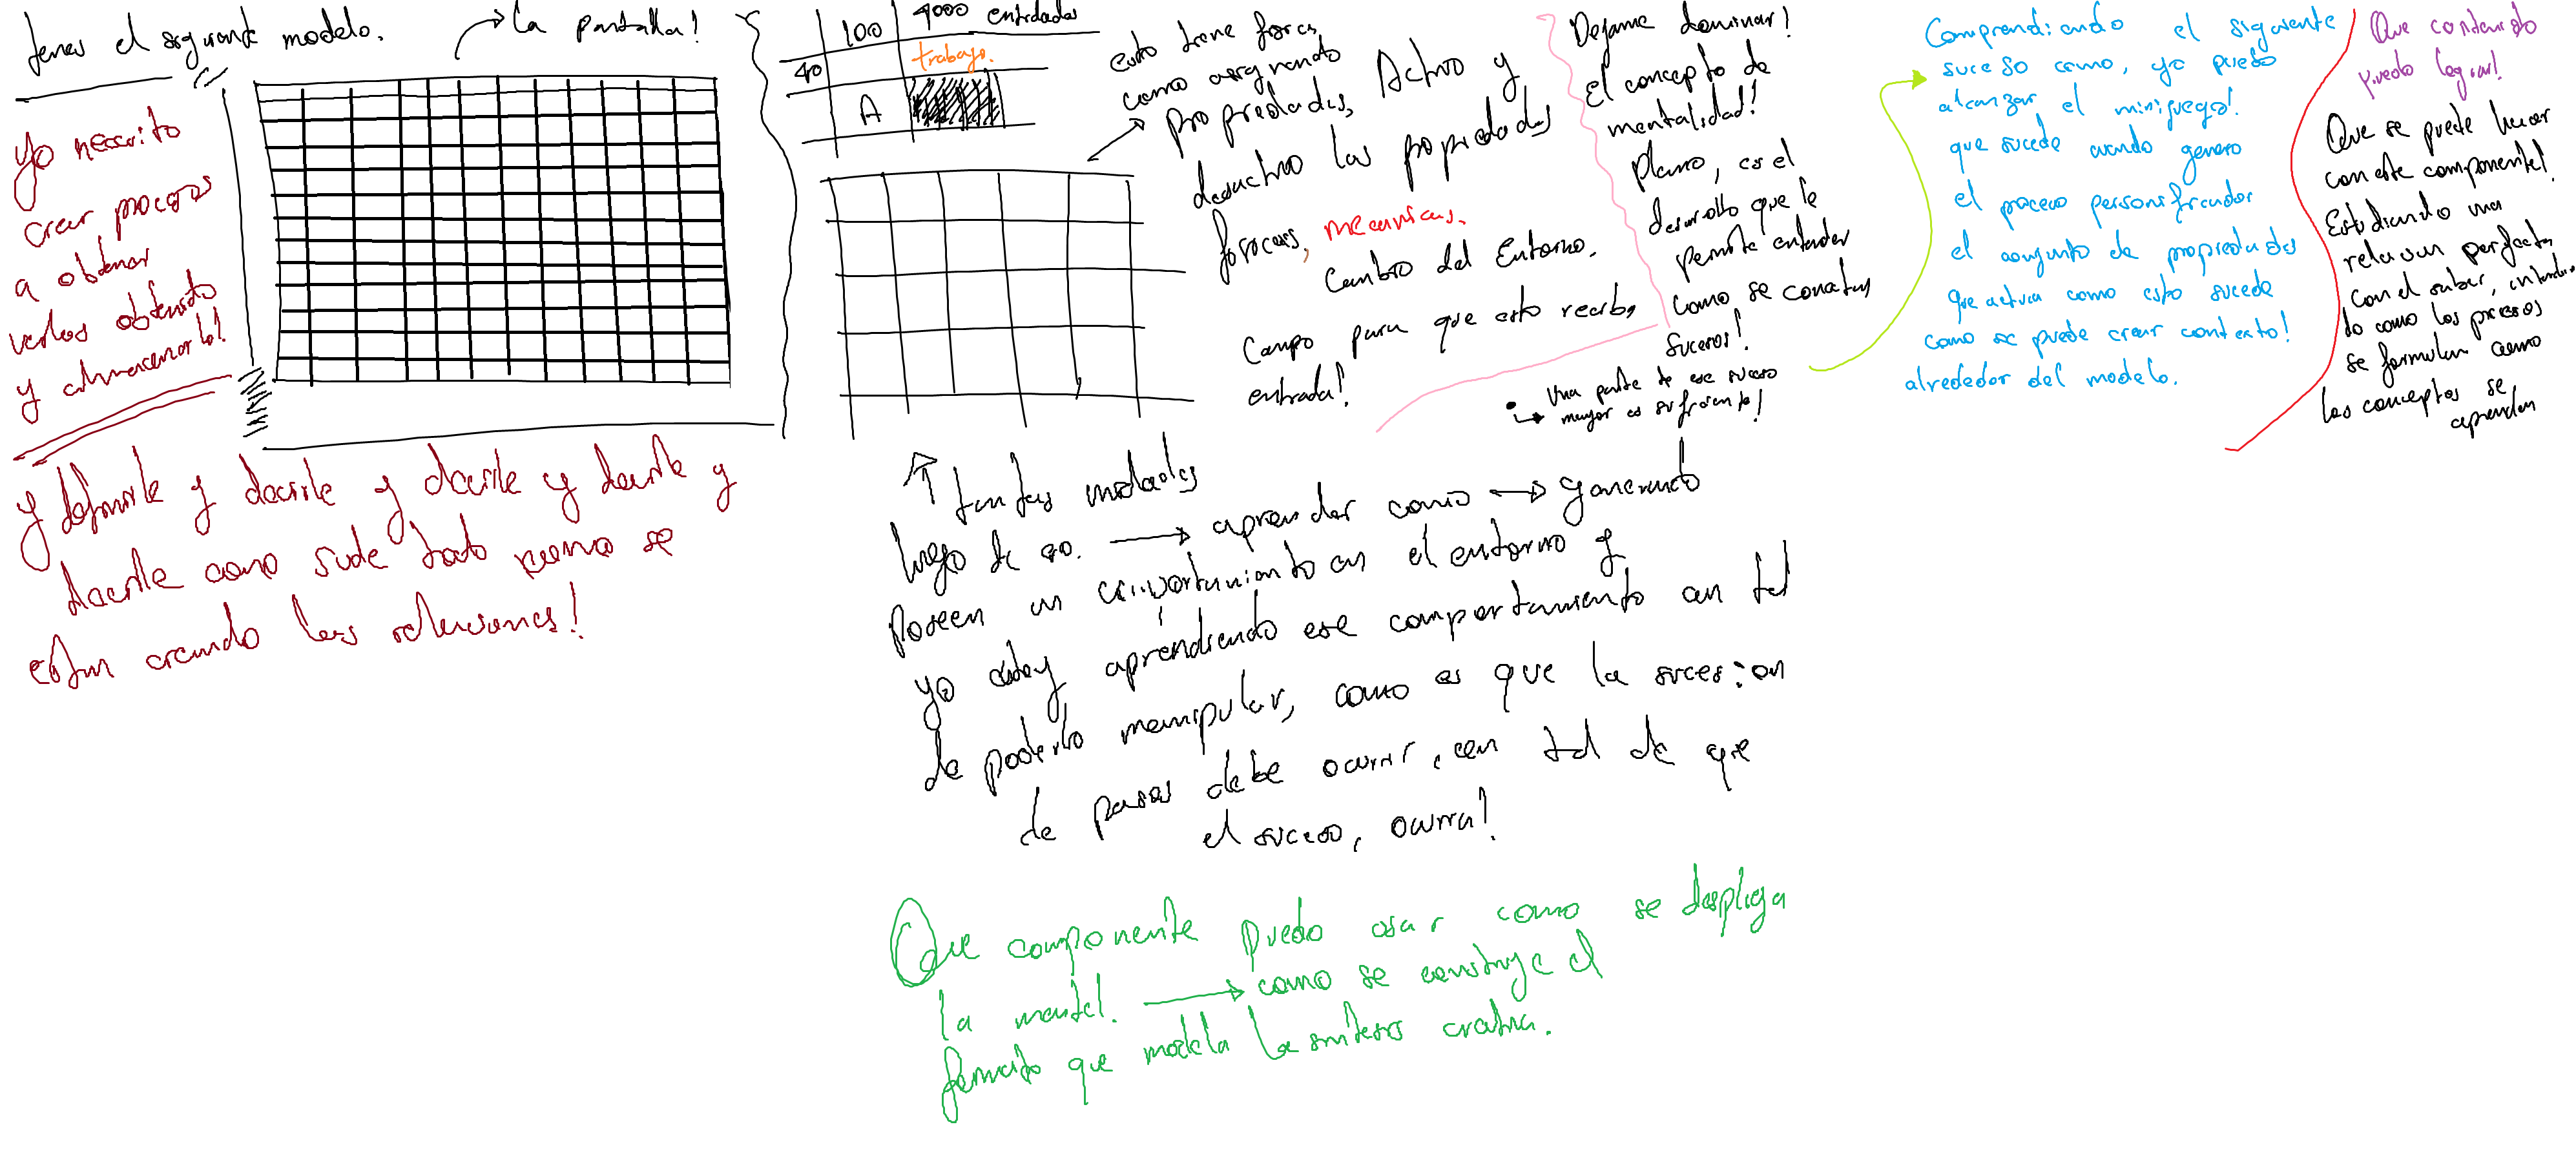 tenes el siguiente modelo.
la pantalla!
Yo necesito
crear procesos
a obtener
obtenido
y almacenarlo!
y definirle y decirle y decirle y decirle y
decirle como todo se
estan creando las relaciones!
100
4000 entidades
40
trabajo.
A
esto tiene
como asignando
propiedades, Activo y
desactivo las propiedades
mecanicas.
Cambio del Entorno.
Campo para que esto reciba
entrada!
Dejame dominar!
El concepto de
mentalidad!
plano, es el
desarrollo que le
permite entender
como se conectan
sucesos!
Una parte de ese suceso
mayor es suficiente!
Comprendiendo el siguiente
suceso como, yo puedo
alcanzar el minijuego!
que sucede cuando genero
el proceso personificador
el conjunto de propiedades
que actua como esto sucede
como se puede crear contexto!
alrededor del modelo.
Que contenido
puedo lograr!
Que se puede hacer
con este componente!
Estudiando una
relacion perfecta
con el saber,
do como los procesos
se formulan como
los conceptos se
aprenden
tantas
luego de eso. aprender como generando
Poseen un comportamiento en el entorno y
yo estoy aprendiendo ese comportamiento en tal
de poderlo manipular, como es que la sucesion
de pasos debe ocurrir, con tal de que
el suceso, ocurra!
Que componente puedo usar como se despliega
la mente! como se construye el
formato que modela la sintesis creativa.